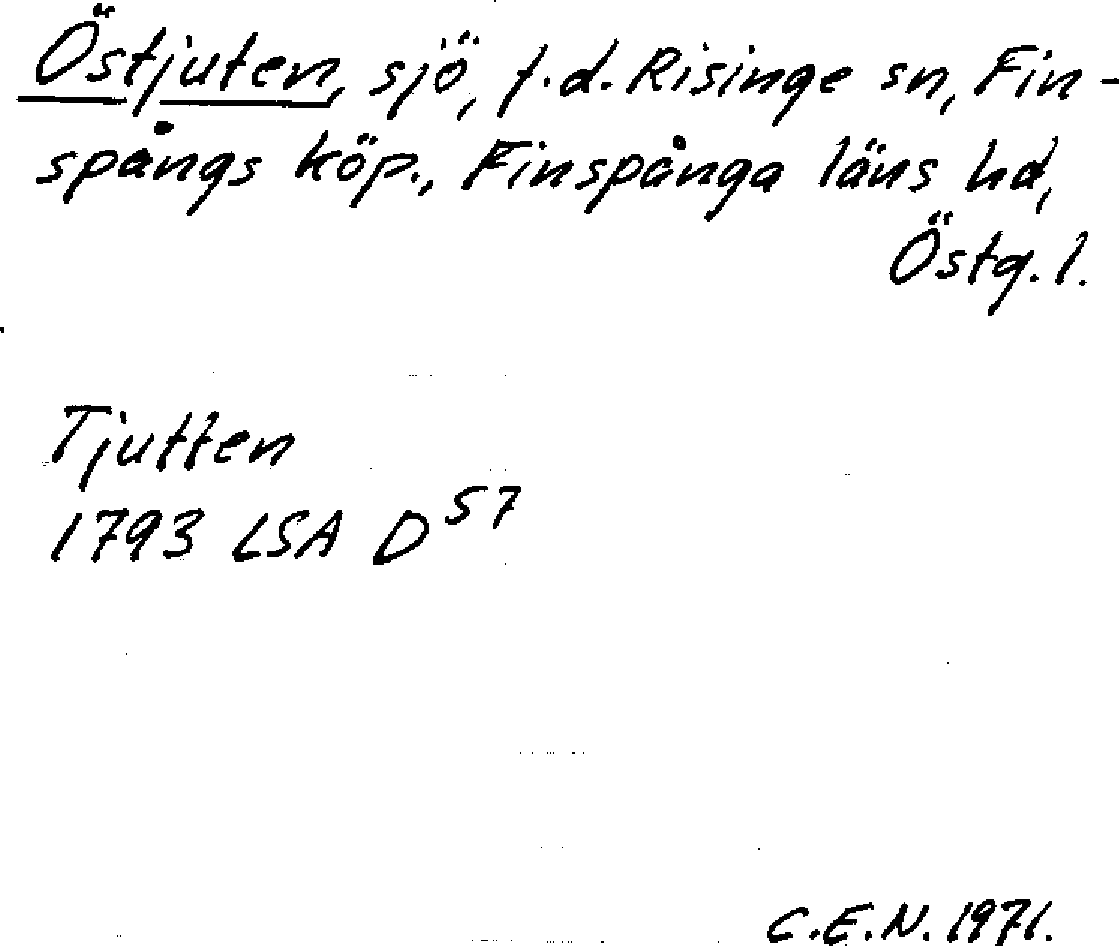 Östjuten, sjö, f.d. Risinge sn, Fin-
spångs köp., Finspånga läns hd,
Östg. l.
Tjutten
1793 LSA D S7
C.E.N. 1971.